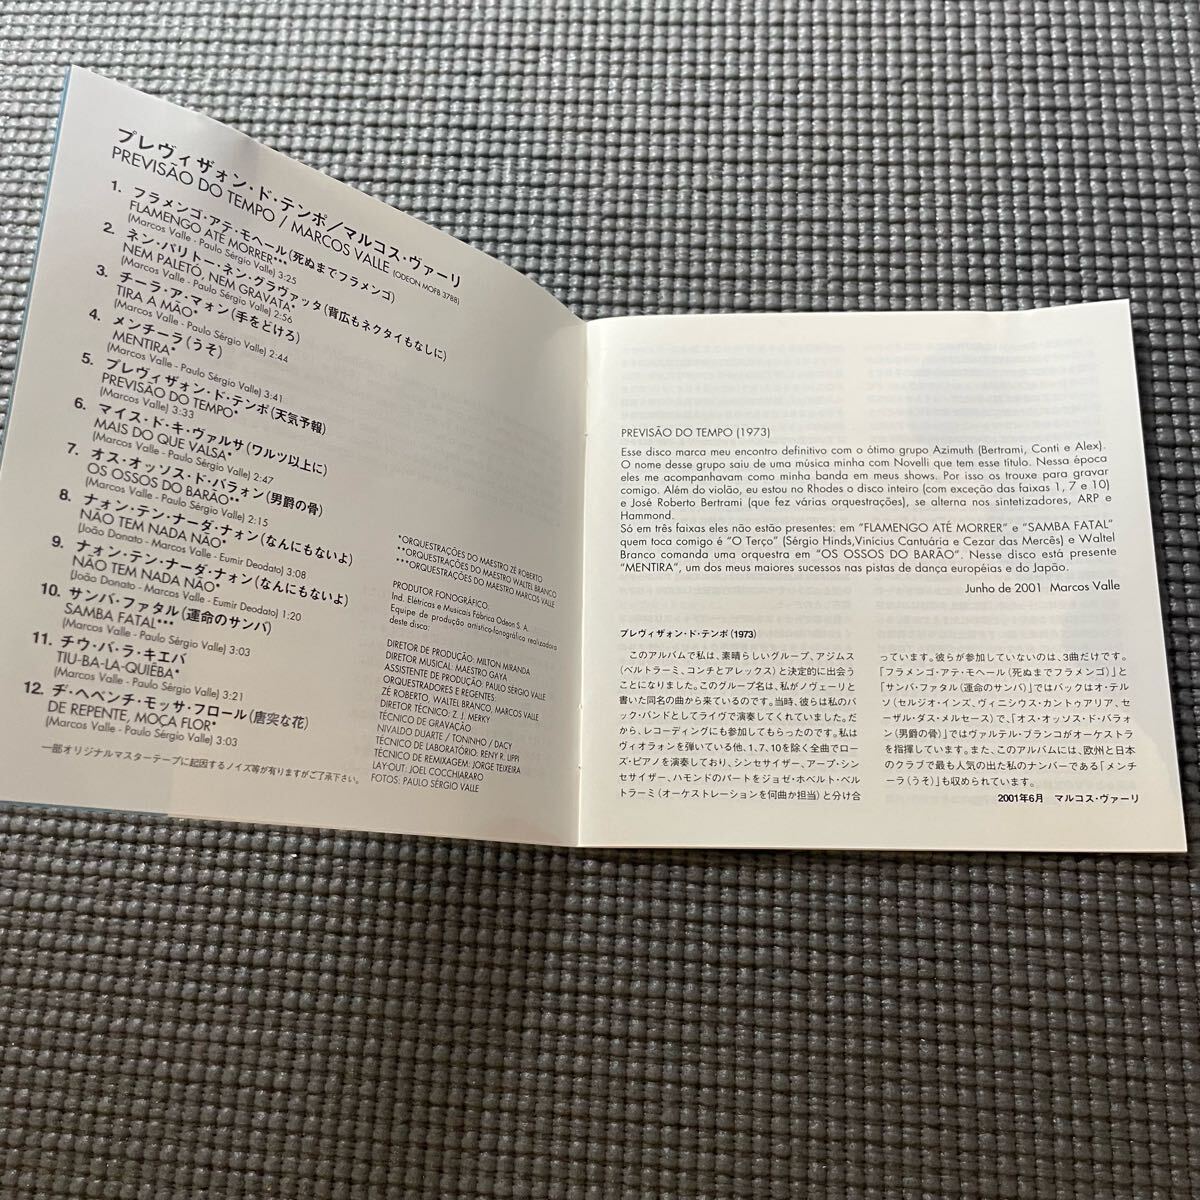 プレヴィザォン・ド・テンポ／マルコス・ヴァーリ
PREVISÃO DO TEMPO / MARCOS VALLE (ODEON MOFB 3788)
1. フラメンゴ・アテ・モヘール(死ぬまでフラメンゴ)
FLAMENGO ATÉ MORRER***
(Marcos Valle - Paulo Sérgio Valle) 3:25
2. ネン・パリトー、ネン・グラヴァッタ(背広もネクタイもなしに)
NEM PALETÓ, NEM GRAVATA*
(Marcos Valle - Paulo Sérgio Valle) 2:56
3. チーラ・ア・マォン(手をどけろ)
TIRA A MÃO*
(Marcos Valle - Paulo Sérgio Valle) 2:44
4. メンチーラ(うそ)
MENTIRA*
(Marcos Valle - Paulo Sérgio Valle) 3:41
5. プレヴィザォン・ド・テンポ(天気予報)
PREVISÃO DO TEMPO*
(Marcos Valle) 3:33
6. マイス・ド・キ・ヴァルサ(ワルツ以上に)
MAIS DO QUE VALSA*
(Marcos Valle - Paulo Sérgio Valle) 2:47
7. オス・オッソス・ド・バラォン(男爵の骨)
OS OSSOS DO BARÃO**
(Marcos Valle - Paulo Sérgio Valle) 2:15
8. ナォン・テン・ナーダ・ナォン(なんにもないよ)
NÃO TEM NADA NÃO*
(João Donato - Marcos Valle - Eumir Deodato) 3:08
9. ナォン・テン・ナーダ・ナォン(なんにもないよ)
NÃO TEM NADA NÃO*
(João Donato - Marcos Valle - Eumir Deodato) 1:20
10. サンバ・ファタル(運命のサンバ)
SAMBA FATAL***
(Marcos Valle - Paulo Sérgio Valle) 3:03
11. チウ・バ・ラ・キエバ
TIU-BA-LA-QUIÊBA*
(Marcos Valle - Paulo Sérgio Valle) 3:21
12. ヂ・ヘペンチ・モッサ・フロール(唐突な花)
DE REPENTE, MOÇA FLOR*
(Marcos Valle - Paulo Sérgio Valle) 3:03
一部オリジナルマスターテープに起因するノイズ等が有りますがご了承下さい。
*ORQUESTRAÇÕES DO MAESTRO ZÉ ROBERTO
**ORQUESTRAÇÕES DO MAESTRO WALTEL BRANCO
***ORQUESTRAÇÕES DO MAESTRO MARCOS VALLE
PRODUTOR FONOGRÁFICO:
Ind. Elétricas e Musicais Fábrica Odeon S. A.
Equipe de produção artístico-fonográfica realizadora
deste disco:
DIRETOR DE PRODUÇÃO: MILTON MIRANDA
DIRETOR MUSICAL: MAESTRO GAYA
ASSISTENTE DE PRODUÇÃO: PAULO SÉRGIO VALLE
ORQUESTRADORES E REGENTES:
ZÉ ROBERTO, WALTEL BRANCO, MARCOS VALLE
DIRETOR TÉCNICO: Z. J. MERKY
TÉCNICO DE GRAVAÇÃO
NIVALDO DUARTE / TONINHO / DACY
TÉCNICO DE LABORATÓRIO: RENY R. LIPPI
TÉCNICO DE REMIXAGEM: JORGE TEIXEIRA
LAY-OUT: JOEL COCCHIARARO
FOTOS: PAULO SÉRGIO VALLE
PREVISÃO DO TEMPO (1973)
Esse disco marca meu encontro definitivo com o ótimo grupo Azimuth (Bertrami, Conti e Alex).
O nome desse grupo saiu de uma música minha com Novelli que tem esse título. Nessa época
eles me acompanhavam como minha banda em meus shows. Por isso os trouxe para gravar
comigo. Além do violão, eu estou no Rhodes o disco inteiro (com exceção das faixas 1, 7 e 10)
e José Roberto Bertrami (que fez várias orquestrações), se alterna nos sintetizadores, ARP e
Hammond.
Só em três faixas eles não estão presentes: em "FLAMENGO ATÉ MORRER" e "SAMBA FATAL"
quem toca comigo é "O Terço" (Sérgio Hinds,Vinícius Cantuária e Cezar das Mercês) e Waltel
Branco comanda uma orquestra em "OS OSSOS DO BARÃO". Nesse disco está presente
"MENTIRA", um dos meus maiores sucessos nas pistas de dança européias e do Japão.
Junho de 2001 Marcos Valle
プレヴィザォン・ド・テンポ(1973)
このアルバムで私は、素晴らしいグループ、アジムス
(ベルトラーミ、コンチとアレックス)と決定的に出会う
ことになりました。このグループ名は、私がノヴェーリと
書いた同名の曲から来ているのです。当時、彼らは私のバ
ック・バンドとしてライヴで演奏してくれていました。だ
から、レコーディングにも参加してもらったのです。私は
ヴィオラォンを弾いている他、1、7、10を除く全曲でロー
ズ・ピアノを演奏しており、シンセサイザー、アープ・シン
セサイザー、ハモンドのパートをジョゼ・ホベルト・ベル
トラーミ(オーケストレーションを何曲か担当)と分け合
っています。彼らが参加していないのは、3曲だけです。
「フラメンゴ・アテ・モヘール(死ぬまでフラメンゴ)」と
「サンバ・ファタル(運命のサンバ)」ではバックはオ・テル
ソ(セルジオ・インズ、ヴィニシウス・カントゥアリア、セ
ーザル・ダス・メルセース)で、「オス・オッソス・ド・バラォ
ン(男爵の骨)」ではヴァルテル・ブランコがオーケストラ
を指揮しています。また、このアルバムには、欧州と日本
のクラブで最も人気の出た私のナンバーである「メンチ
ーラ(うそ)」も収められています。
2001年6月　マルコス・ヴァーリ